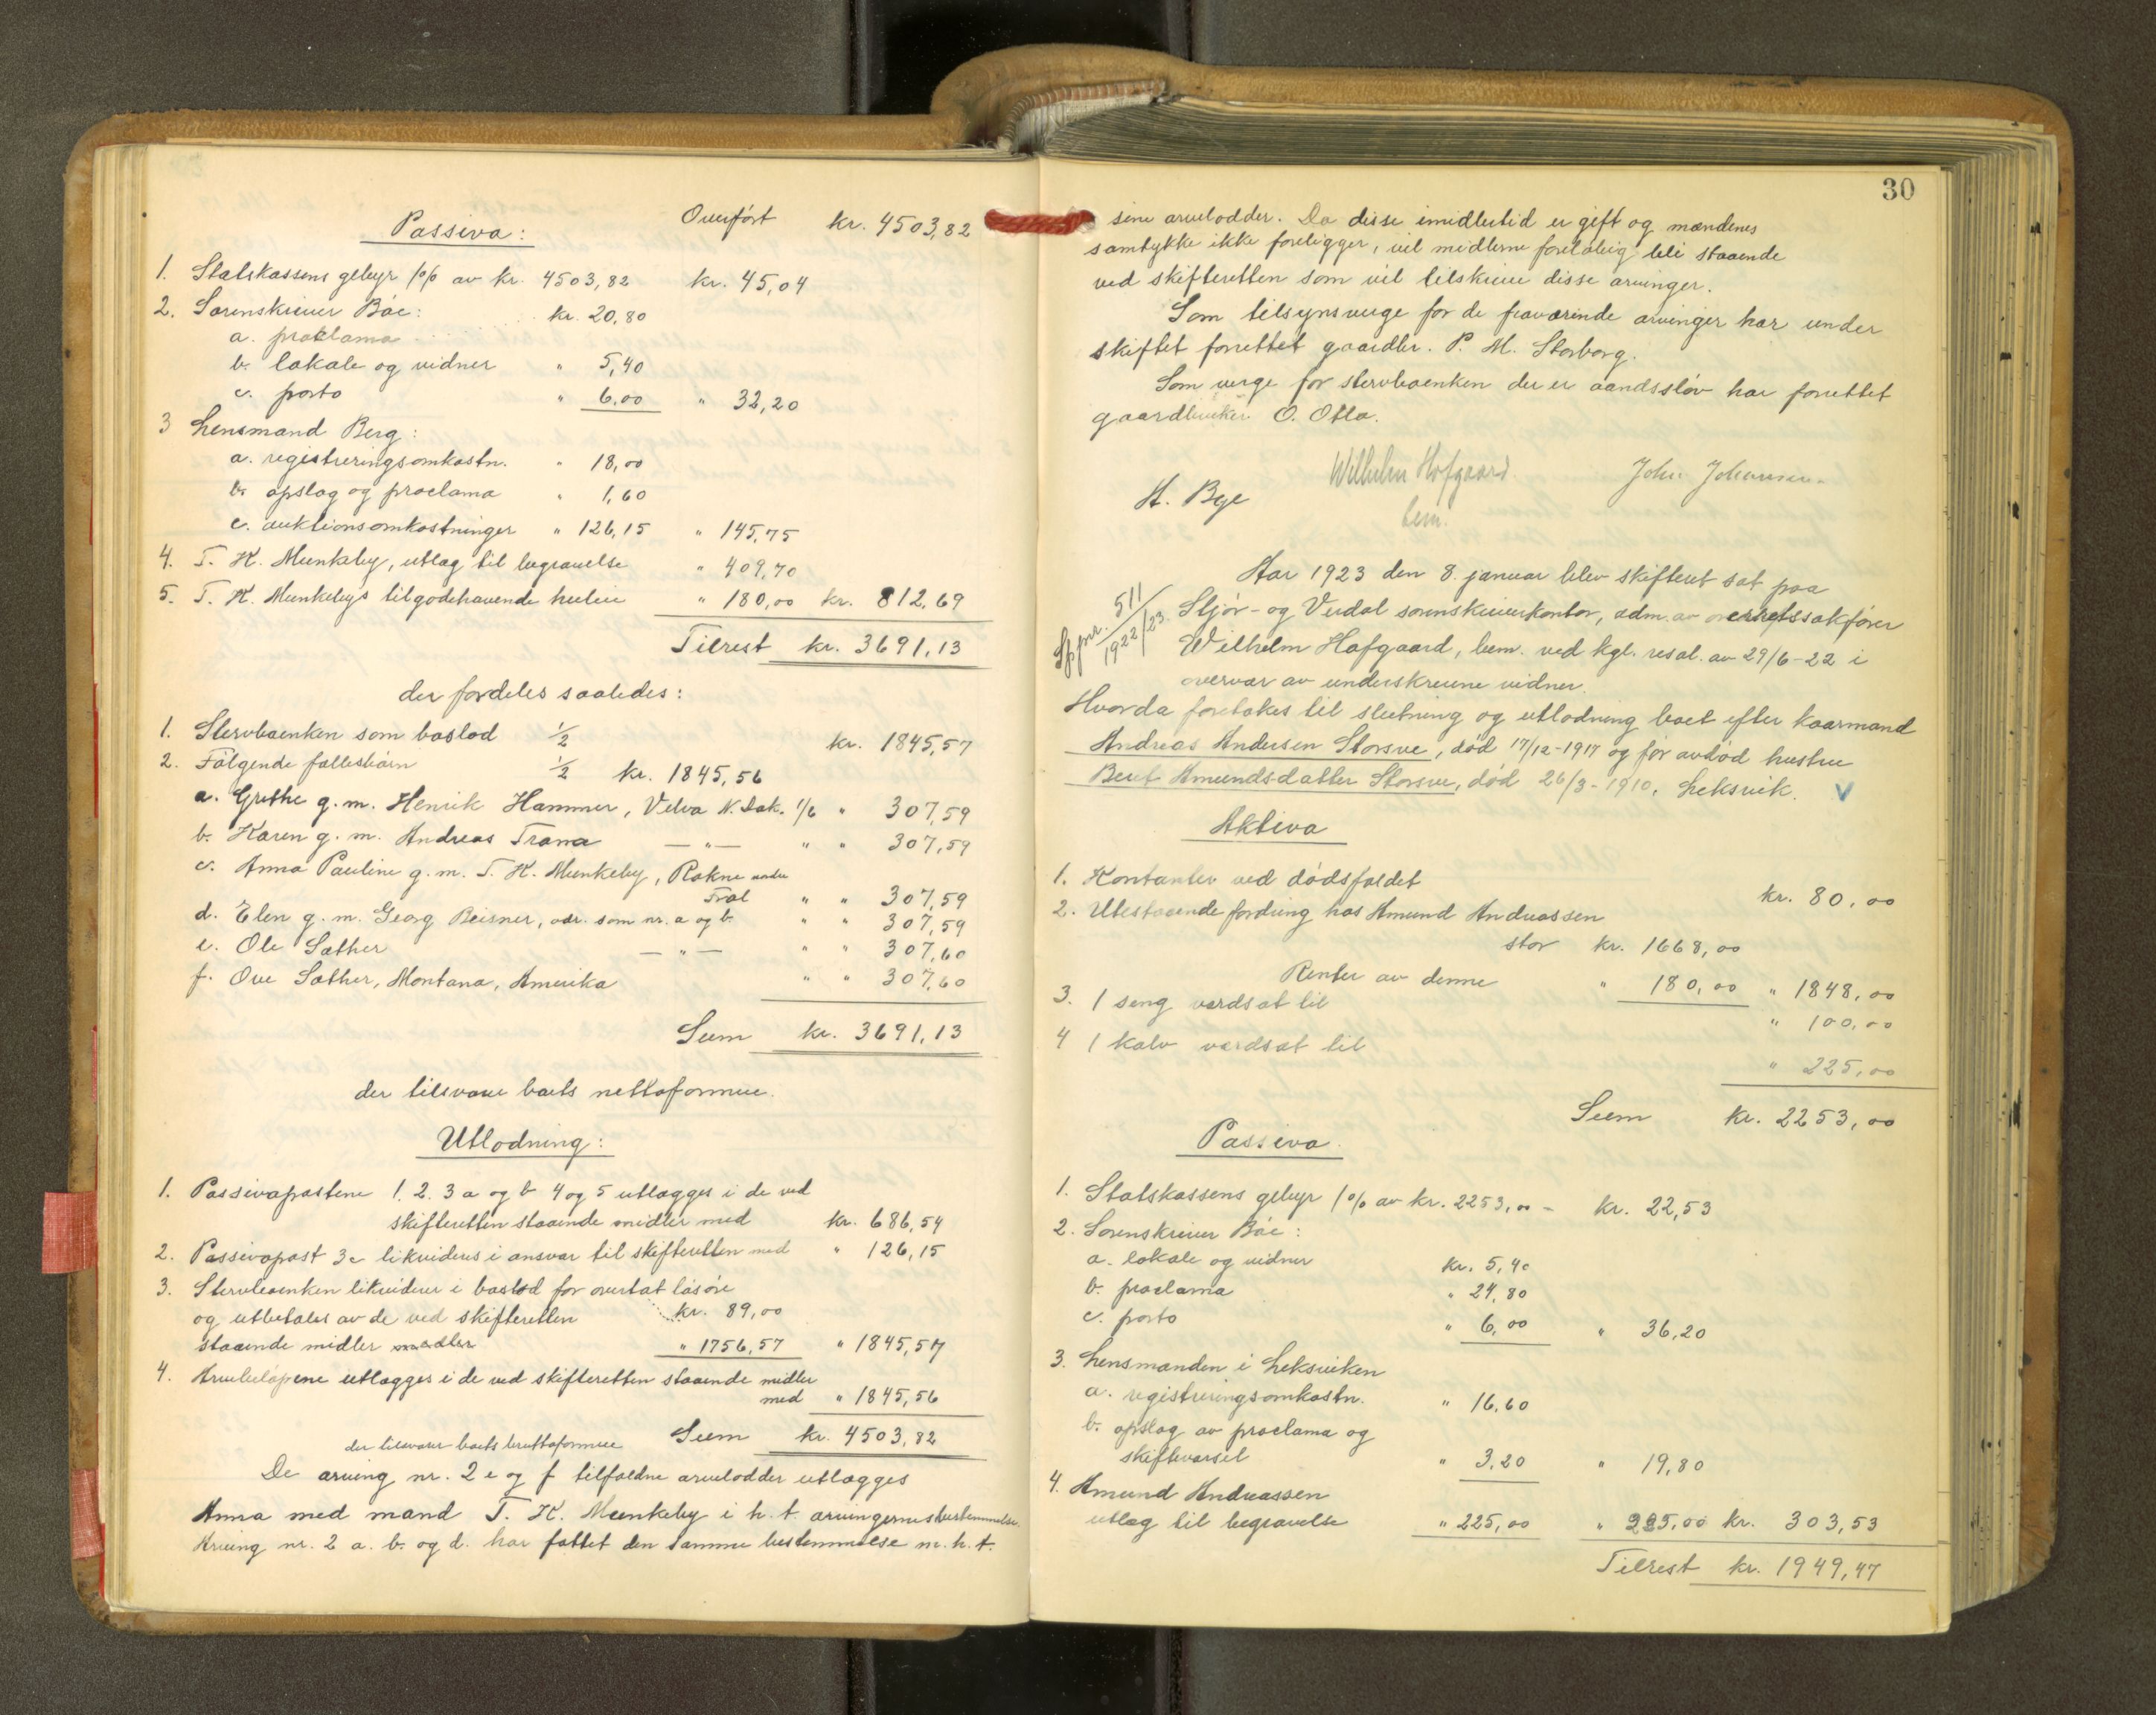 Overført kr. 4503,82
Passiva:
1. Statskassens gebyr 1% av kr. 4503,82 kr. 45,04
2. Sorenskriver Bøe:
a. proclama kr. 20,80
b. lokale og vidner " 5,40
c. porto " 6,00 " 32,20
3 Lensmand Berg:
a. registreringsomkostn. " 18,00
b. opslag og proclama " 1,60
c. auktionsomkostninger " 126,15 " 145,75
4. T. K. Munkeby, utlæg til begravelse " 409,70
5. T. K. Munkebys tilgodehavende " 180,00 kr. 812,69
Tilrest kr. 3691,13
der fordeles saaledes:
1. Stervboenken som boslod 1/2 kr. 1845,57
2. Følgende fællesbarn 1/2 kr. 1845,56
a. Grethe g. m. Henrik Hammer, Velva N. Dak. 1/6 " 307,59
b. Karen g. m. Andreas Trana — " — " " 307,59
c. Anna Pauline g. m. T. K. Munkeby, Rokne
" " 307,59
d. Elen g. m. Georg Beisner, adr. som nr. a og b. " " 307,59
e. Ole Sæther — " — " " 307,60
f. Ove Sæther, Montana, Amerika " " 307,60
Sum kr. 3691,13
der tilsvarer boets nettoformue.
Utlodning:
1. Passivapostene 1. 2. 3 a og b 4 og 5 utlægges i de ved
skifteretten staaende midler med kr. 686,54
2. Passivapost 3c likvideres i ansvar til skifteretten med " 126,15
3. Stervboenken likviderer i boslod for overtat løsøre
kr. 89,00
og utbetales av de ved skifteretten
staaende midler " 1756,57 " 1845,57
4. Arvebeløpene utlægges i de ved skifteretten staaende midler
med " 1845,56
der tilsvarer boets bruttoformue Sum kr. 4503,82
De arving nr. 2 e og f tilfaldne arvelodder utlægges
Anna med mand T. K. Munkeby i h. t. arvingernes bestemmelse.
Arving nr. 2 a. b. og d. har fattet den samme bestemmelse m. h. t.
30
sine arvelodder. Da disse imidlertid er gift og mændenes
samtykke ikke foreligger, vil midlerne foreløbig bli staaende
ved skifteretten som vil tilskrive disse arvinger.
Som tilsynsverge for de fraværende arvinger har under
skiftet forrettet gaardbr. P. M. Storborg.
Som verge for stervboenken der er aandssløv har forrettet
gaardbruker O. Otla.
H. Bye Wilhelm Hofgaard John Johansen
bem.
Aar 1923 den 8. januar blev skifteret sat paa
Stjør- og Verdal sorenskriverkontor, adm. av overretssakfører
Wilhelm Hofgaard, bem. ved kgl. resol. av 29/6-22 i
overvær av underskrevne vidner.
Sppnr. 511
1922/23.
Hvorda foretokes til slutning og utlodning boet efter kaarmand
Andreas Andersen Storsve, død 17/12-1917 og før avdød hustru
Berit Amundsdatter Storsve, død 26/3-1910, Leksvik.
Aktiva
1. Kontanter ved dødsfaldet kr. 80,00
2. Utestaaende fordring hos Amund Andreassen
stor kr. 1668,00
Renter av denne " 180,00 " 1848,00
3. 1 seng værdsat til " 100,00
4 1 kalv værdsat til " 225,00
Sum kr. 2253,00
Passiva.
1. Statskassens gebyr 1% av kr. 2253,00 - kr. 22,53
2. Sorenskriver Bøe:
a. lokale og vidner kr. 5,40
b. proclama " 24,80
c. porto " 6,00 " 36,20
3. Lensmanden i Leksviken
a. registreringsomkostn. " 16,60
b. opslag av proclama og
skiftevarsel " 3,20 " 19,80
4. Amund Andreassen
utlæg til begravelse " 225,00 " 225,00 kr. 303,53
Tilrest kr. 1949,47